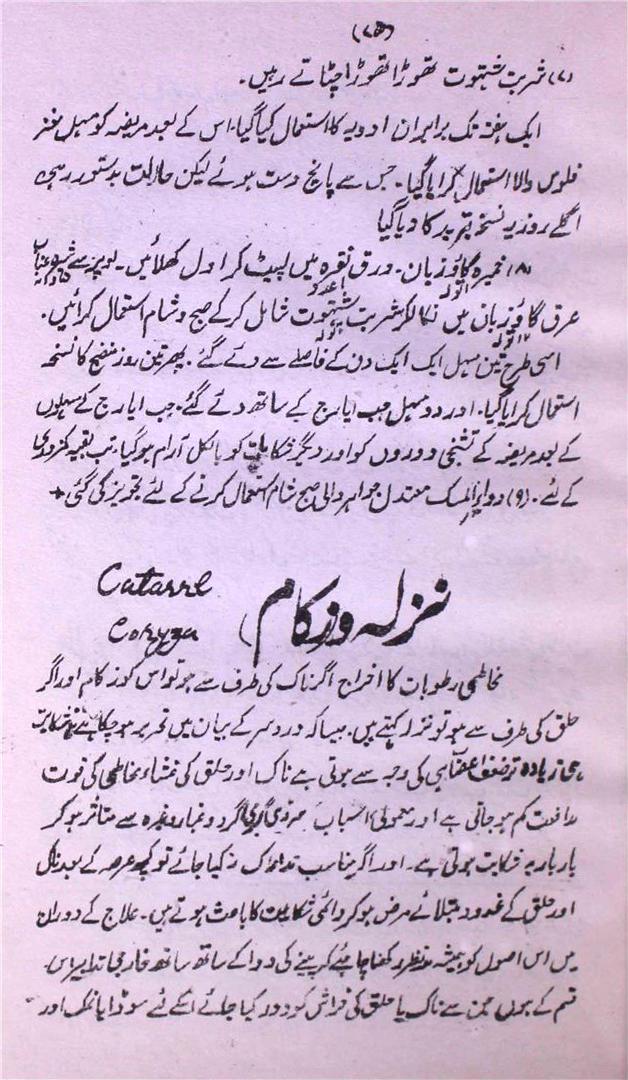 (۷۵)
(۷) شربت شہتوت تھوڑا تھوڑا چٹاتے رہیں۔
ایک ہفتہ تک برابر ان ادویہ کا استعمال کیا گیا۔ اس کے بعد مریضہ کو مسہل مغز
فلوس والا استعمال کرایا گیا۔ جس سے پانچ دست ہوئے لیکن حالت بدستور رہی
اگلے روز یہ نسخہ تبرید کا دیا گیا
(۸) خمیرہ گاؤزبان۔ ورق نقرہ میں لپیٹ کر اول کھلائیں۔ اوپر سے شیرہ عناب
۱ تولہ ۱ عدد ۵ دانہ
عرق گاؤزبان میں نکالکر شربت شہتوت شامل کرکے صبح و شام استعمال کرائیں۔
۱۲ تولہ تولہ
اسی طرح تین مسہل ایک ایک دن کے فاصلے سے دئے گئے۔ پھر تین روز منضج کا نسخہ
استعمال کرایا گیا۔ اور دو مسہل حب ایارج کے ساتھ دئے گئے۔ جب ایارج کے مسہلوں
کے بعد مریضہ کے تشنجی دوروں کو اور دیگر شکایات کو بالکل آرام ہوگیا۔ تب بقیہ کمزوری
کے لئے۔ (۹) دواء المسک معتدل جواہر والی صبح شام استعمال کرنے کے لئے تجویز کی گئی +
نزلہ و زکام
Catarre
Coryga
مخاطی رطوبات کا اخراج اگر ناک کی طرف سے ہو تو اس کو زکام اور اگر
حلق کی طرف سے ہو تو نزلہ کہتے ہیں۔ جیسا کہ درد سر کے بیان میں تحریر ہو چکا ہے یہ شکایت
بھی زیادہ تر ضعف اعصاب ہی کی وجہ سے ہوتی ہے ناک اور حلق کی غشاء مخاطی کی قوت
مدافعت کم ہو جاتی ہے اور معمولی اسباب سردی گرمی گرد و غبار وغیرہ سے متاثر ہو کر
بار بار یہ شکایت ہوتی ہے۔ اور اگر مناسب تدارک نہ کیا جائے تو کچھ عرصہ کے بعد ناک
اور حلق کے غدود مبتلائے مرض ہو کر دائمی شکایت کا باعث ہوتے ہیں۔ علاج کے دوران
میں اس اصول کو ہمیشہ مدنظر رکھنا چاہئے کہ پینے کی دوا کے ساتھ ساتھ خارجی تدابیر اس
قسم کے ہوں جن سے ناک یا حلق کی خراش کو دور کیا جائے اسکے لئے سوڈا یا نمک اور